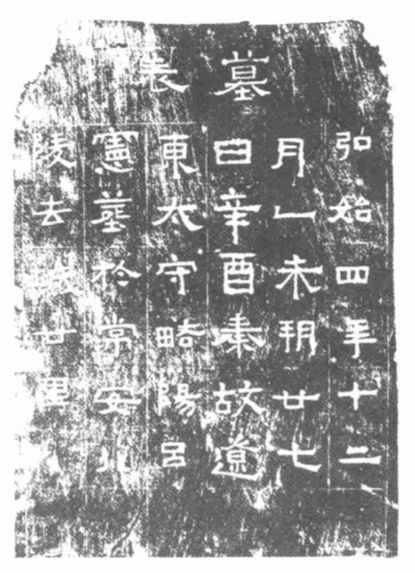 墓表
弘始四年十二
月乙未朔廿七
日辛酉秦故遼
東太守略陽呂
憲葬於常安北
陵去城廿里